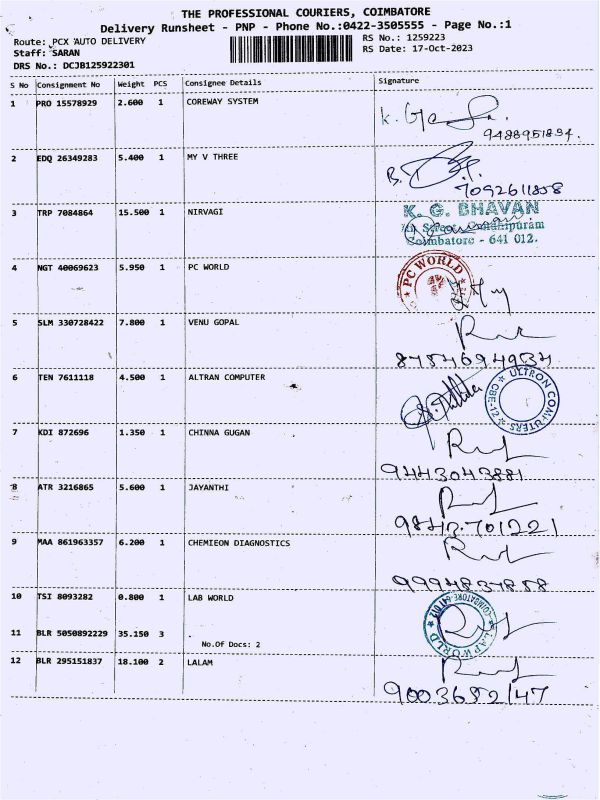 THE PROFESSIONAL COURIERS, COIMBATORE
Delivery Runsheet - PNP - Phone No.:0422-3505555 - Page No.:1
Route: PCX AUTO DELIVERY
RS No.: 1259223
Staff: SARAN
RS Date: 17-Oct-2023
DRS No.: DCJB125922301
S No Consignment No Weight PCS Consignee Details Signature
1 PRO 15578929 2.600 1 COREWAY SYSTEM
9488951894.
2 EDQ 26349283 5.400 1 MY V THREE
7092611858
3 TRP 7084864 15.500 1 NIRVAGI
K. G. BHAVAN
Coimbatore - 641 012.
4 NGT 40069623 5.950 1 PC WORLD
PC WORLD
5 SLM 330728422 7.800 1 VENU GOPAL
6 TEN 7611118 4.500 1 ALTRAN COMPUTER
ULTRON COMPUTERS CBE-12
7 KDI 872696 1.350 1 CHINNA GUGAN
9443043881
8 ATR 3216865 5.600 1 JAYANTHI
9842701221
9 MAA 861963357 6.200 1 CHEMIEON DIAGNOSTICS
10 TSI 8093282 0.800 1 LAB WORLD
COIMBATORE-641 012
11 BLR 5050892229 35.150 3
No.Of Docs: 2
12 BLR 295151837 18.100 2 LALAM
9003652147